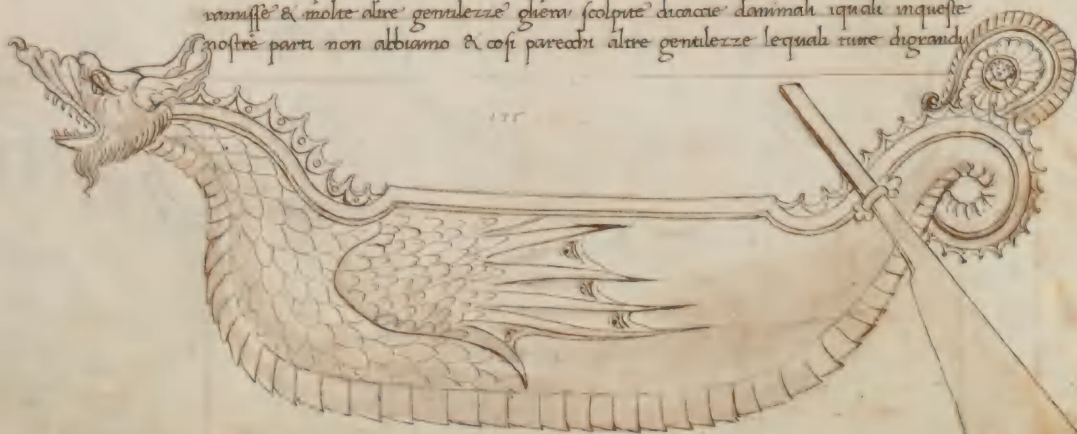 ramisse & molte altre gentilezze ghiera scolpite dicaccie danimali iquali inqueste
nostre parti non abbiamo & cosi parecchi altre gentilezze lequali tutte digrandi
135